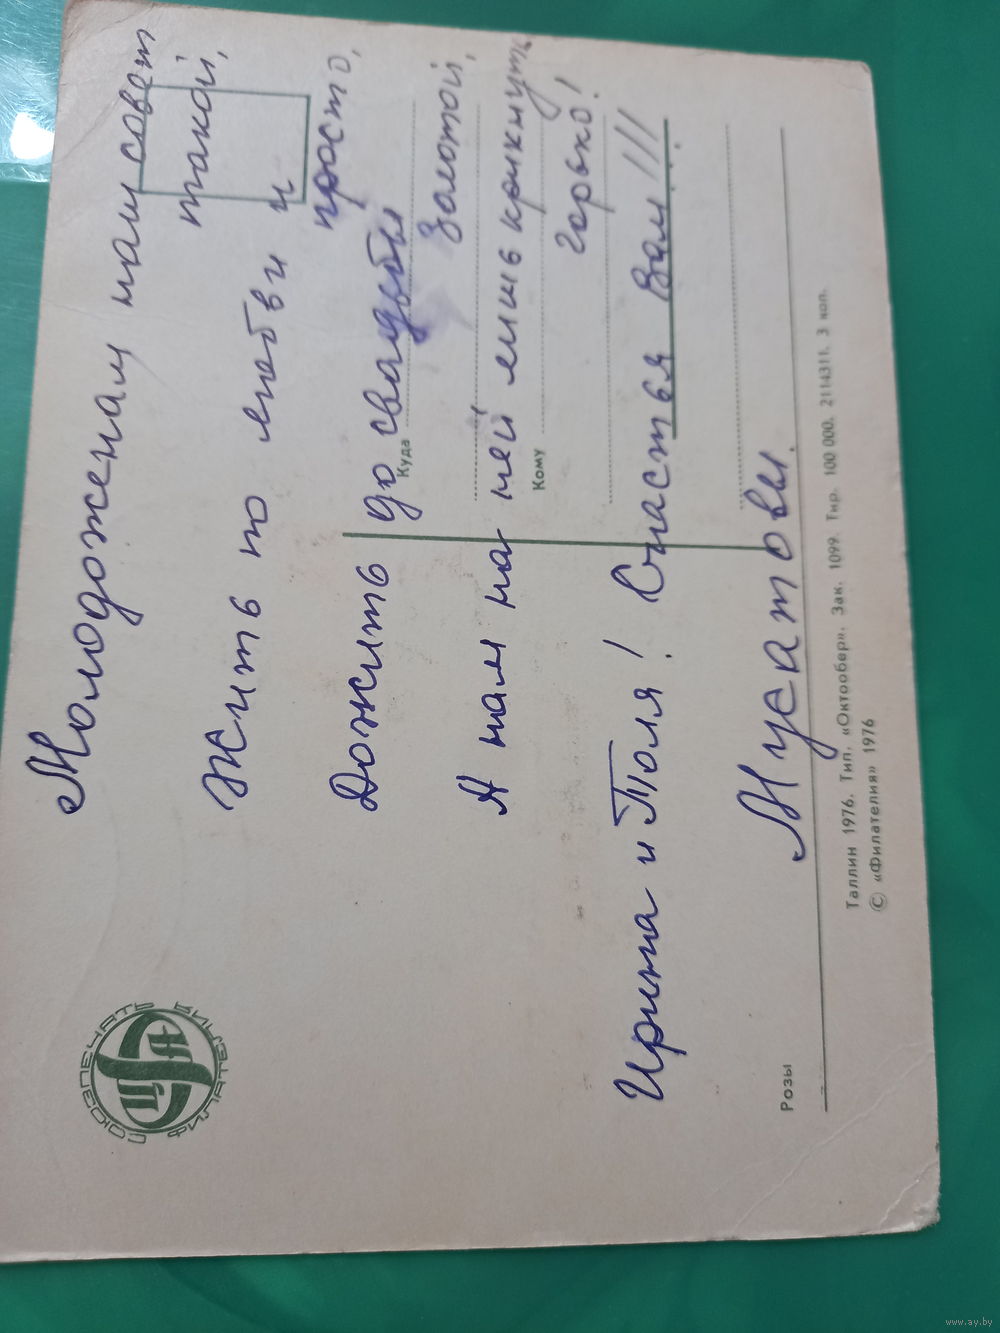 Молодоженам наш совет
такой,
Жить по любви и
просто,
Дожить до свадьбы
золотой,
А нам на ней лишь крикнуть
горько!
Ирина и Толя! Счастья Вам!!!
Мусатовы.
Куда
Кому
СОЮЗПЕЧАТЬ
ФИЛАТЕЛИЯ
Розы
Таллин 1976. Тип. «Октообер». Зак. 1099. Тир. 100 000. 2114311. 3 коп.
© «Филателия» 1976
www.ay.by